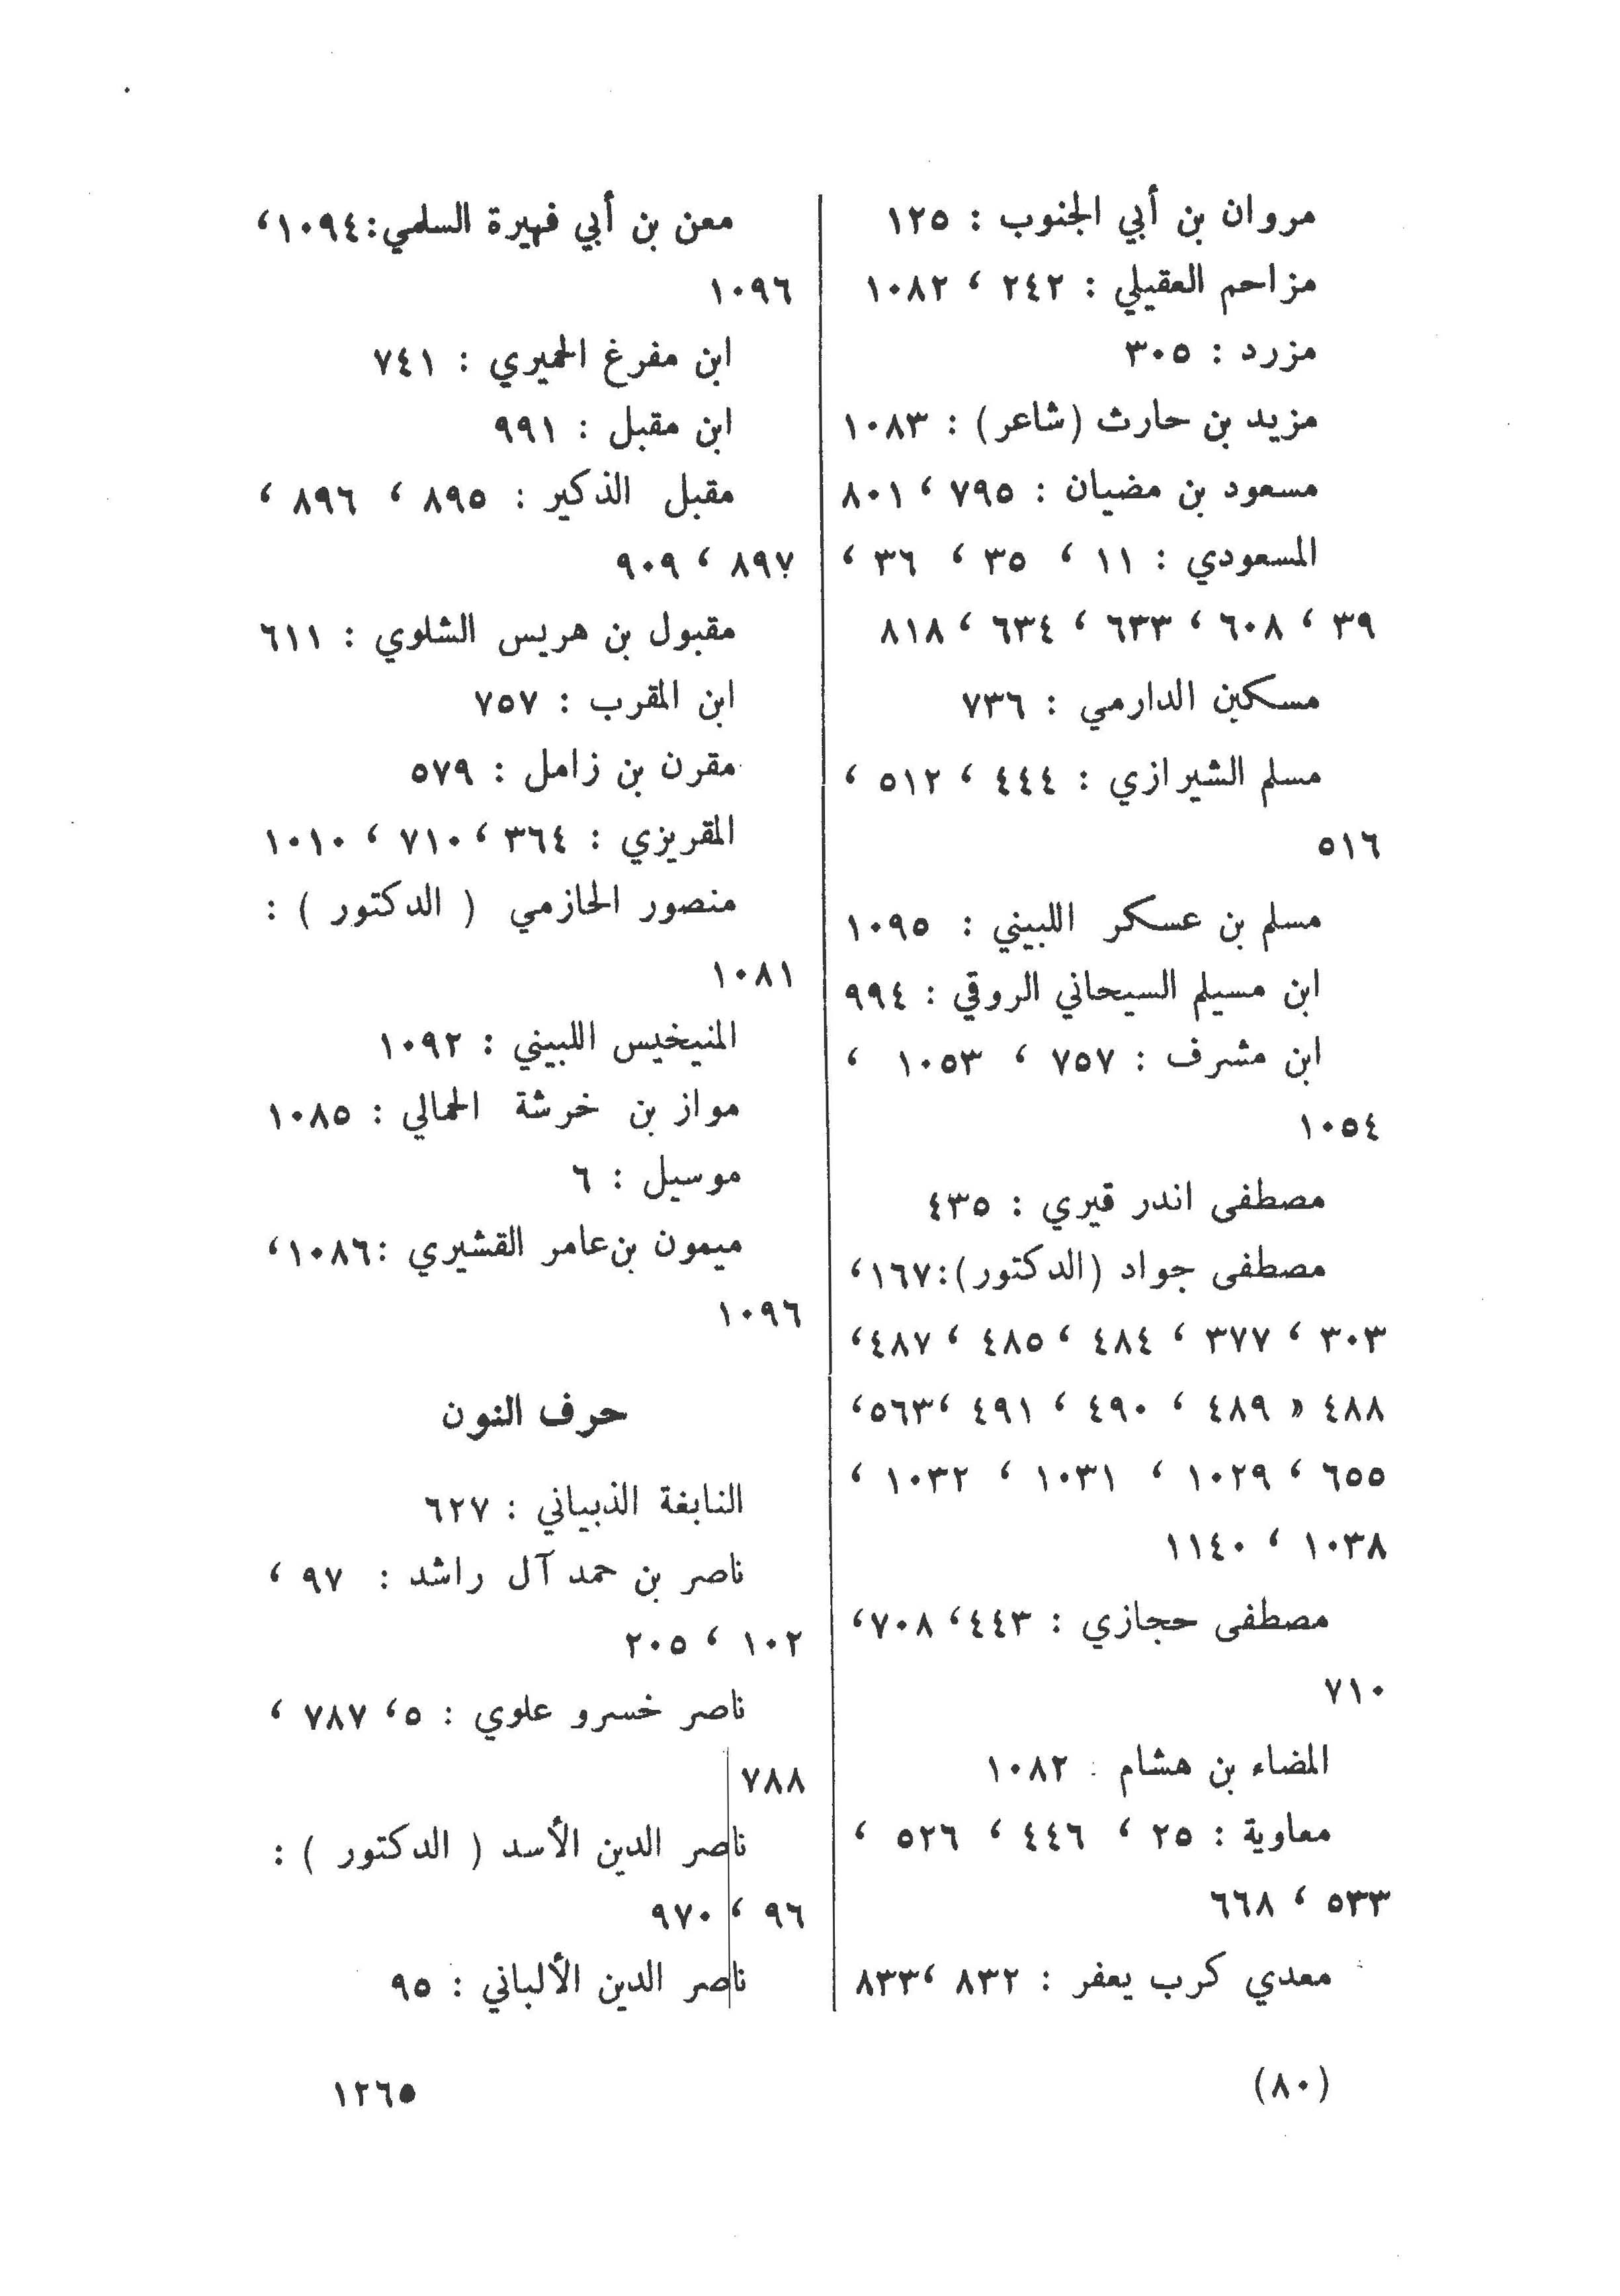 مروان بن أبي الجنوب : ١٢٥
مزاحم العقيلي : ٢٤٢ ، ١٠٨٢
مزرد : ٣٠٥
مزيد بن حارث (شاعر) : ١٠٨٣
مسعود بن مضيان : ٧٩٥ ، ٨٠١
المسعودي : ١١ ، ٣٥ ، ٣٦ ،
٣٩ ، ٦٠٨ ، ٦٣٣ ، ٦٣٤ ، ٨١٨
مسكين الدارمي : ٧٣٦
مسلم الشيرازي : ٤٤٤ ، ٥١٢ ،
٥١٦
مسلم بن عسكر اللبيني : ١٠٩٥
ابن مسيلم السيحاني الروقي : ٩٩٤
ابن مشرف : ٧٥٧ ، ١٠٥٣ ،
١٠٥٤
مصطفى اندر قيري : ٤٣٥
مصطفى جواد (الدكتور):١٦٧،
٣٠٣ ، ٣٧٧ ، ٤٨٤ ، ٤٨٥ ، ٤٨٧،
٤٨٨ » ٤٨٩ ، ٤٩٠ ، ٤٩١ ،٥٦٣،
٦٥٥ ، ١٠٢٩ ، ١٠٣١ ، ١٠٣٢ ،
١٠٣٨ ، ١١٤٠
مصطفى حجازي : ٤٤٣، ٧٠٨،
٧١٠
المضاء بن هشام : ١٠٨٢
معاوية : ٢٥ ، ٤٤٦ ، ٥٢٦ ،
٥٣٣ ، ٦٦٨
معدي كرب يعفر : ٨٣٢ ،٨٣٣
معن بن أبي فهيرة السلمي:١٠٩٤،
١٠٩٦
ابن مفرغ الحميري : ٧٤١
ابن مقبل : ٩٩١
مقبل الذكير : ٨٩٥ ، ٨٩٦ ،
٨٩٧ ، ٩٠٩
مقبول بن هريس الشلوي : ٦١١
ابن المقرب : ٧٥٧
مقرن بن زامل : ٥٧٩
المقريزي : ٣٦٤ ، ٧١٠ ، ١٠١٠
منصور الحازمي ( الدكتور ) :
١٠٨١
المنيخيس اللبيني : ١٠٩٢
مواز بن خرشة الحمالي : ١٠٨٥
موسيل : ٦
ميمون بن عامر القشيري :١٠٨٦،
١٠٩٦
حرف النون
النابغة الذبياني : ٦٢٧
ناصر بن حمد آل راشد : ٩٧ ،
١٠٢ ، ٢٠٥
ناصر خسرو علوي : ٥، ٧٨٧ ،
٧٨٨
ناصر الدين الأسد ( الدكتور ) :
٩٦ ، ٩٧٠
ناصر الدين الألباني : ٩٥
(٨٠)
١٢٦٥